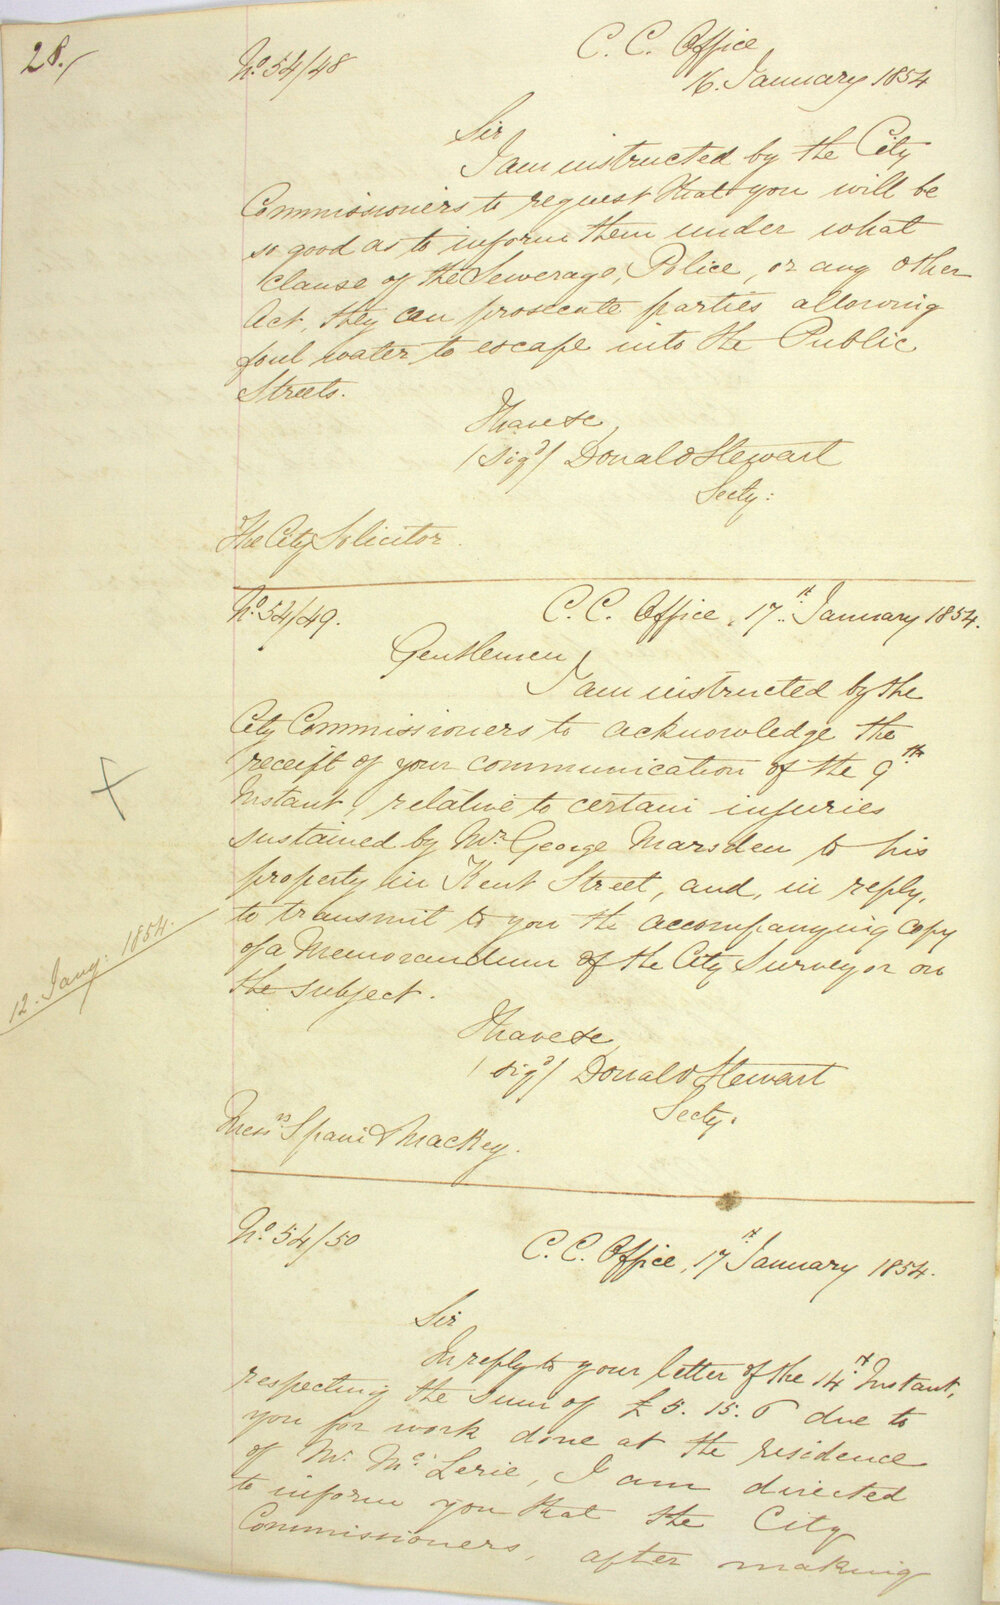 28./
No. 54/48
C. C. Office
16. January 1854
Sir
I am instructed by the City
Commissioners to request that you will be
so good as to inform them under what
clause of the Sewerage, Police, or any other
Act, they can prosecute parties allowing
foul water to escape into the Public
Streets.
I have &c
/sigd/ Donald Stewart
Secty:
The City Solicitor.
No. 54/49.
C. C. Office, 17th January 1854.
Gentlemen,
I am instructed by the
City Commissioners to acknowledge the
receipt of your communication of the 9th
Instant, relative to certain injuries
sustained by Mr. George Marsden to his
property in Kent Street, and, in reply,
to transmit to you the accompanying copy
of a Memorandum of the City Surveyor on
the subject.
12. Jany: 1854.
I have &c
/sigd/ Donald Stewart
Secty.
Messrs Spain & Mackey.
No. 54/50
C. C. Office, 17th January 1854.
Sir
In reply to your letter of the 14th Instant,
respecting the sum of £5. 15. 6 due to
you for work done at the residence
of Mr. Mc Lerie, I am directed
to inform you that the City
Commissioners, after making